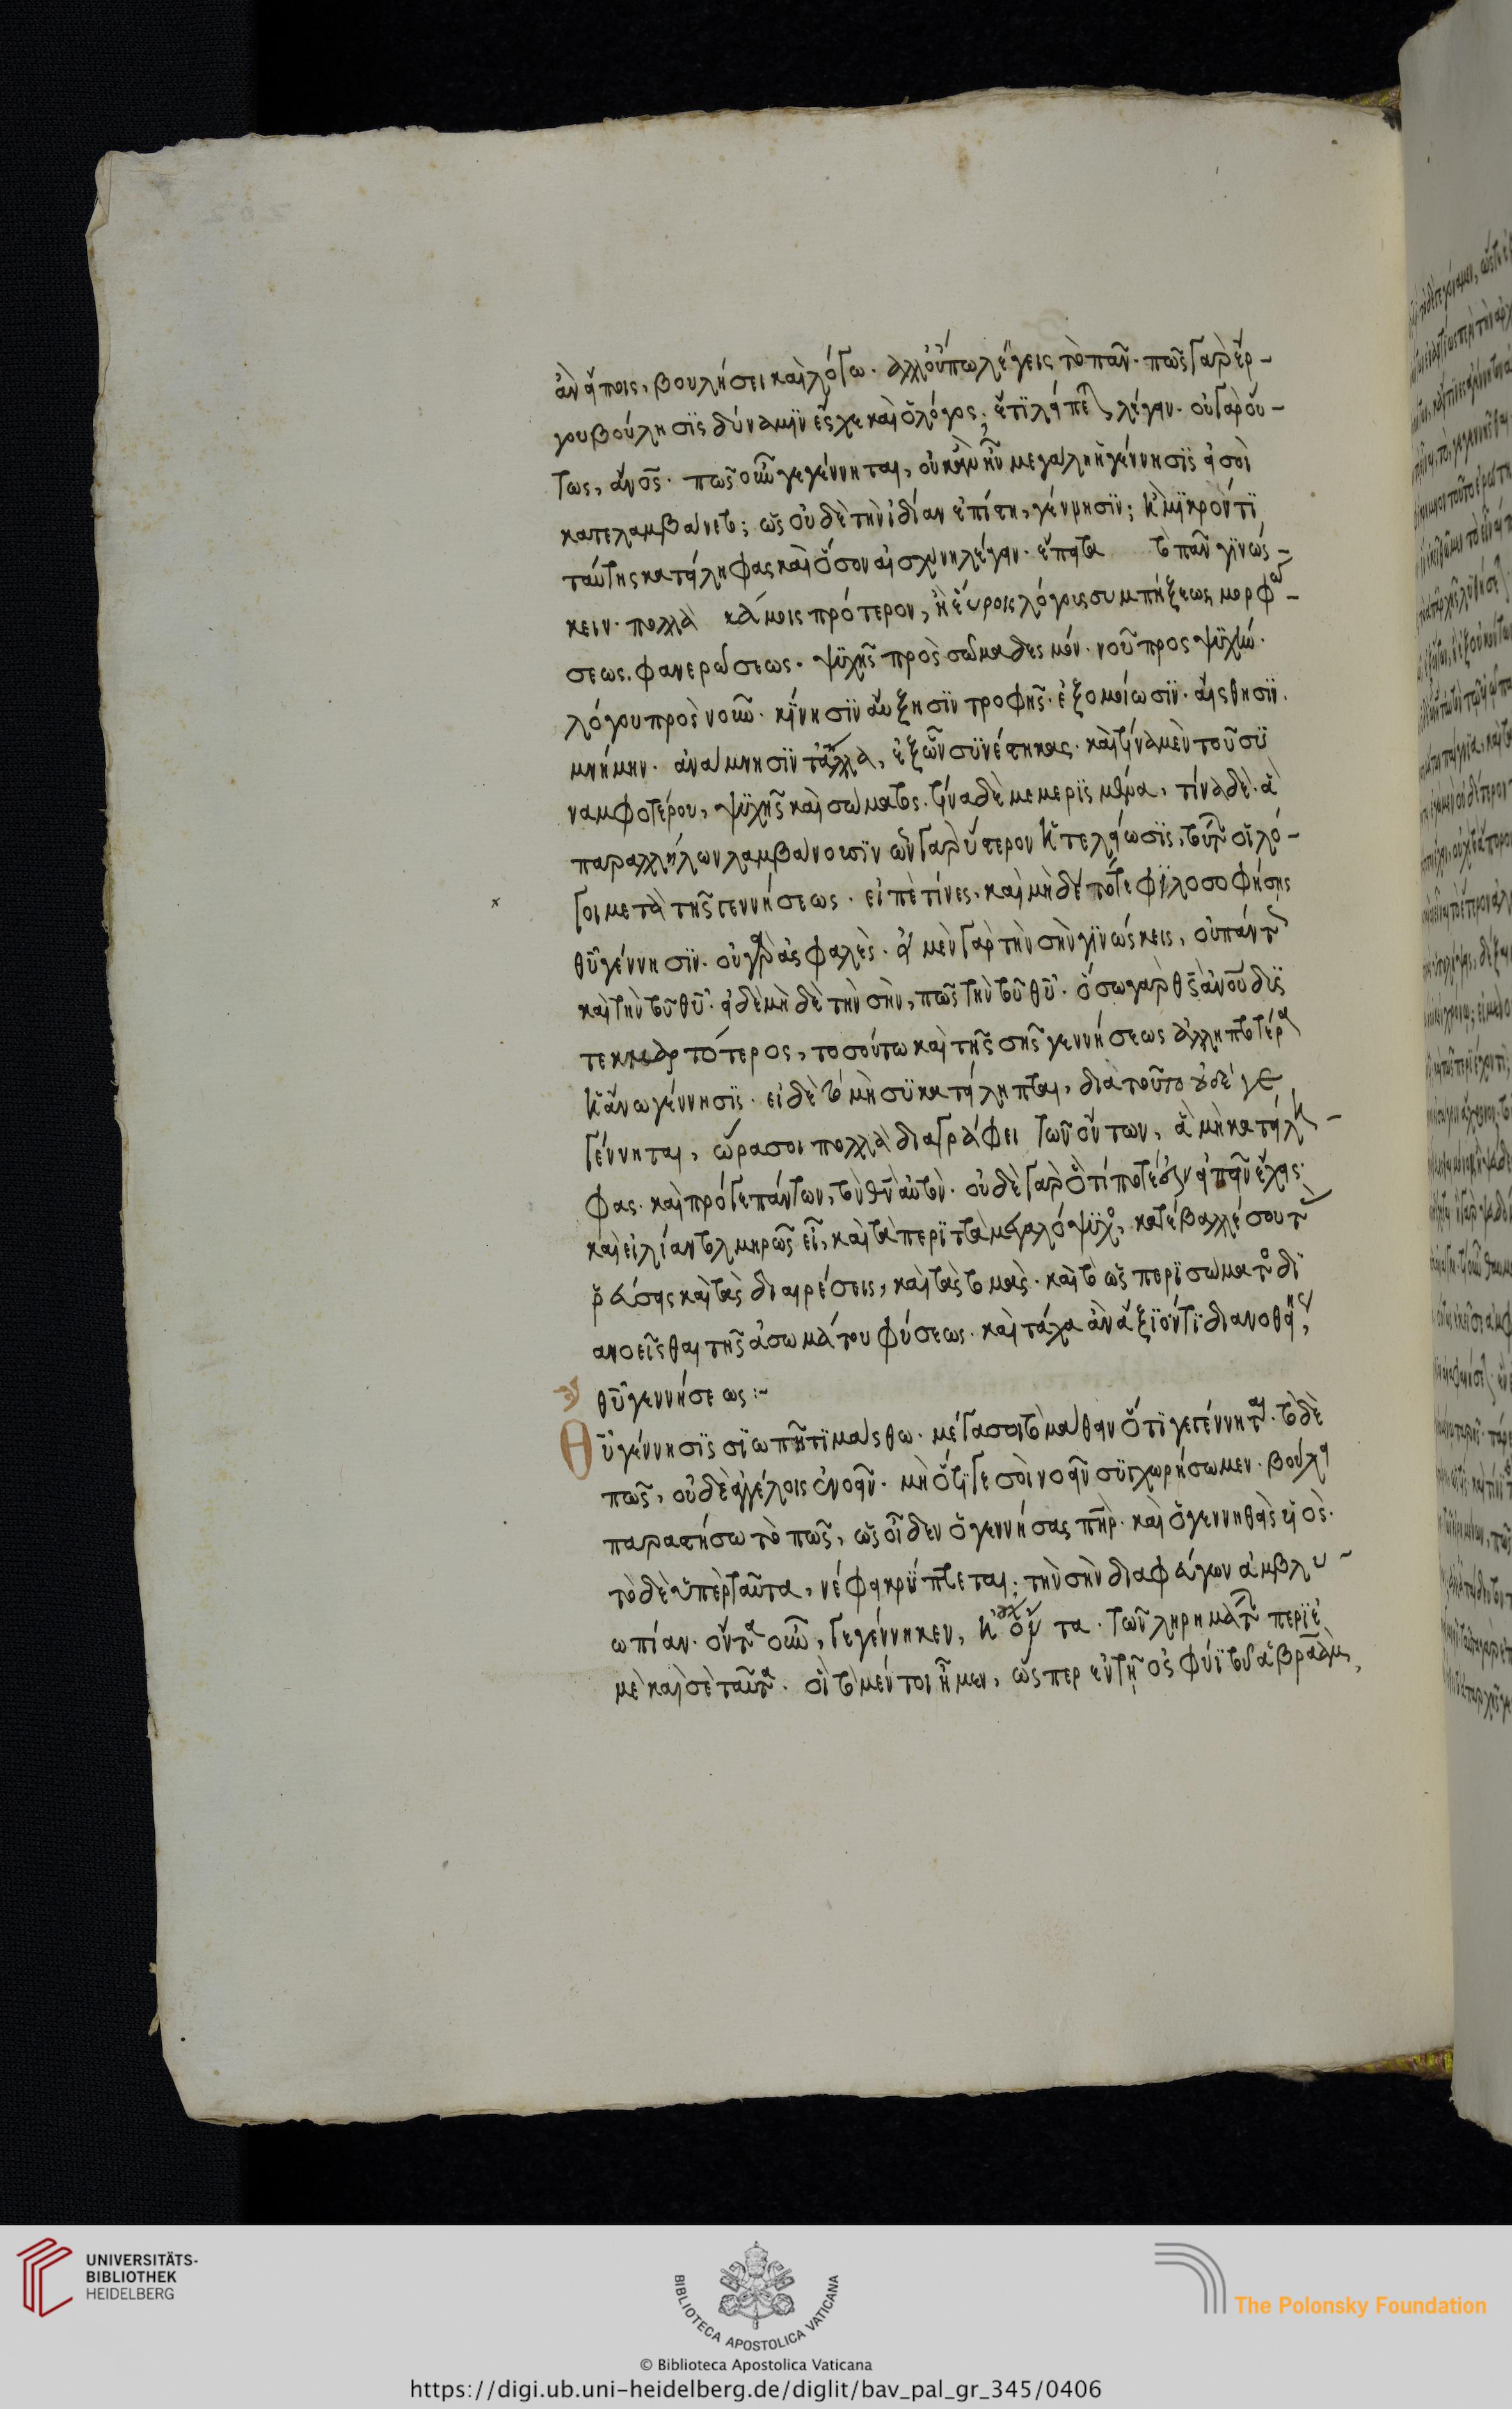 ἂν εἴποις, βουλήσει καὶ λόγω. ἀλλ' οὔπω λέγεις τὸ πᾶν. πῶς γὰρ ἔρ-
γου βούλησϊς δύναμϊν ἔσχε καὶ ὁ λόγος; ἔτϊ λείπε λέγειν. οὐ γὰρ οὕ-
τως, ἄνος. πῶς οὖν γεγέννηται, οὐκ ἂν ἦν μεγάλη ἡ γέννησϊς εἰ σοὶ
κατελαμβάνετο; ὃς οὐδὲ τὴν ἰδίαν ἐπίστη, γέννησϊν; ἢ μϊκρόν τϊ
ταύτης κατείληφας καὶ ὅσον αἰσχύνη λέγειν. ἔπειτα τὸ πᾶν γϊνώς-
κειν. πολλὰ κάμοις πρότερον, ἢ εὕροις λόγους συμπήξεως μορφώ-
σεως. φανερώσεως. ψϋχῆς πρὸς σῶμα δεσμόν. νοῦ πρὸς ψϋχήν.
λόγου πρὸς νοῦν. κίνησϊν αὔξησϊν τροφῆς. ἐξομοίωσϊν. αἴσθησϊν.
μνήμην. ἀνάμνησϊν τἄλλα, ἐξ ὧν σϋνέστηκας. καὶ τίνα μὲν τοῦ σϋ
ναμφοτέρου, ψϋχῆς καὶ σώματος. τίνα δὲ μεμερϊσμένα, τίνα δὲ. ἃ
παραλλήλων λαμβάνουσϊν ὧν γὰρ ὕστερον ἡ τελείωσϊς, τούτ οἱ λό-
γοι μετὰ τῆς γεννήσεως. εἰπὲ τίνες. καὶ μὴ δέ ποτε φϊλοσοφήσης
θῦ γέννησϊν. οὐ γὰρ ἀσφαλὲς. εἰ μὲν γὰρ τὴν σὴν γϊνώσκεις, οὐ πάντ
καὶ τὴν τοῦ θῦ. εἰ δὲ μὴ δὲ τὴν σὴν, πῶς τὴν τοῦ θῦ. ὅσω γὰρ θς ἀνοῦ δυς
τεκμαρτότερος, τοσούτω καὶ τῆς σῆς γεννήσεως ἀλληπτοτέρα
ἡ ἄνω γέννησϊς. εἰ δὲ τὸ μὴ σϋ κατείληπται, διὰ τοῦτο οὐδὲ γε
γέννηται, ὥρα σοι πολλὰ διαγράφει τῶν ὄντων, ἃ μὴ κατείλη-
φας. καὶ πρό γε πάντων, τὸν θν αὐτὸν. οὐδὲ γὰρ ὅ τί ποτέ ἐστιν εἰπεῖν ἔχεις.
καὶ εἰ λίαν τολμηρῶς εἶ, καὶ τὰ περϊττὰ μεγαλόψϋχο, κατέβαλλέ σου τ
ῥεύσεις καὶ τὰς διαιρέσεις, καὶ τὰς τομὰς. καὶ τὸ ὡς περϊ σώματο δϊ
ανοεῖσθαι τῆς ἀσωμάτου φύσεως. καὶ τάχα ἂν ἄξϊόν τϊ διανοθείης,
θῦ γεννήσεως:~
Θῦ γέννησϊς σϊωπῆ τϊμάσθω. μέγα σοι τὸ μαθεῖν ὅτϊ γεγέννητα. τὸ δὲ
πῶς, οὐδὲ ἀγγέλοις ἐννοεῖν. μὴ ὅτϊ γε σοὶ νοεῖν σϋγχωρήσωμεν. βούλει
παραστήσω τὸ πῶς, ὡς οἶδεν ὁ γεννήσας πῆρ. καὶ ὁ γεννηθεὶς υἱὸς.
τὸ δὲ ὑπὲρ ταῦτα, νέφει κρϋπτεται. τὴν σὴν διαφεύγων ἀμβλυ-
ωπίαν. ὄντα οὖν, γεγέννηκεν, ἢ οὐκ ὄντα. τῶν ληρημάτ περϊ ἐ
μὲ καὶ σὲ ταῦτα. οἳ τὸ μέν τοι ἦμεν, ὥσπερ ἐν τῆ ὀσφύϊ τοῦ ἀβραὰμ,
UNIVERSITÄTS-
BIBLIOTHEK
HEIDELBERG
BIBLIOTECA APOSTOLICA VATICANA
The Polonsky Foundation
© Biblioteca Apostolica Vaticana
https://digi.ub.uni-heidelberg.de/diglit/bav_pal_gr_345/0406